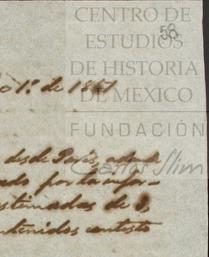 CENTRO DE
ESTUDIOS
DE HISTORIA
DE MEXICO
FUNDACIÓN
Carlos Slim
58
1º de 1867
desde Paris
ado por la infor-
estimadas de
ntenidos contesto